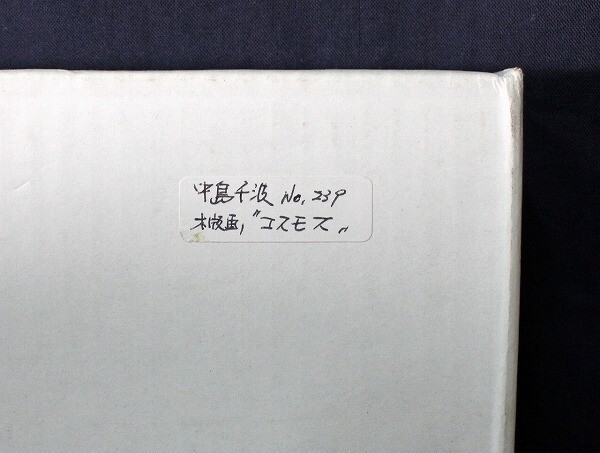 中島千波 No. 239
木版画, "コスモス"